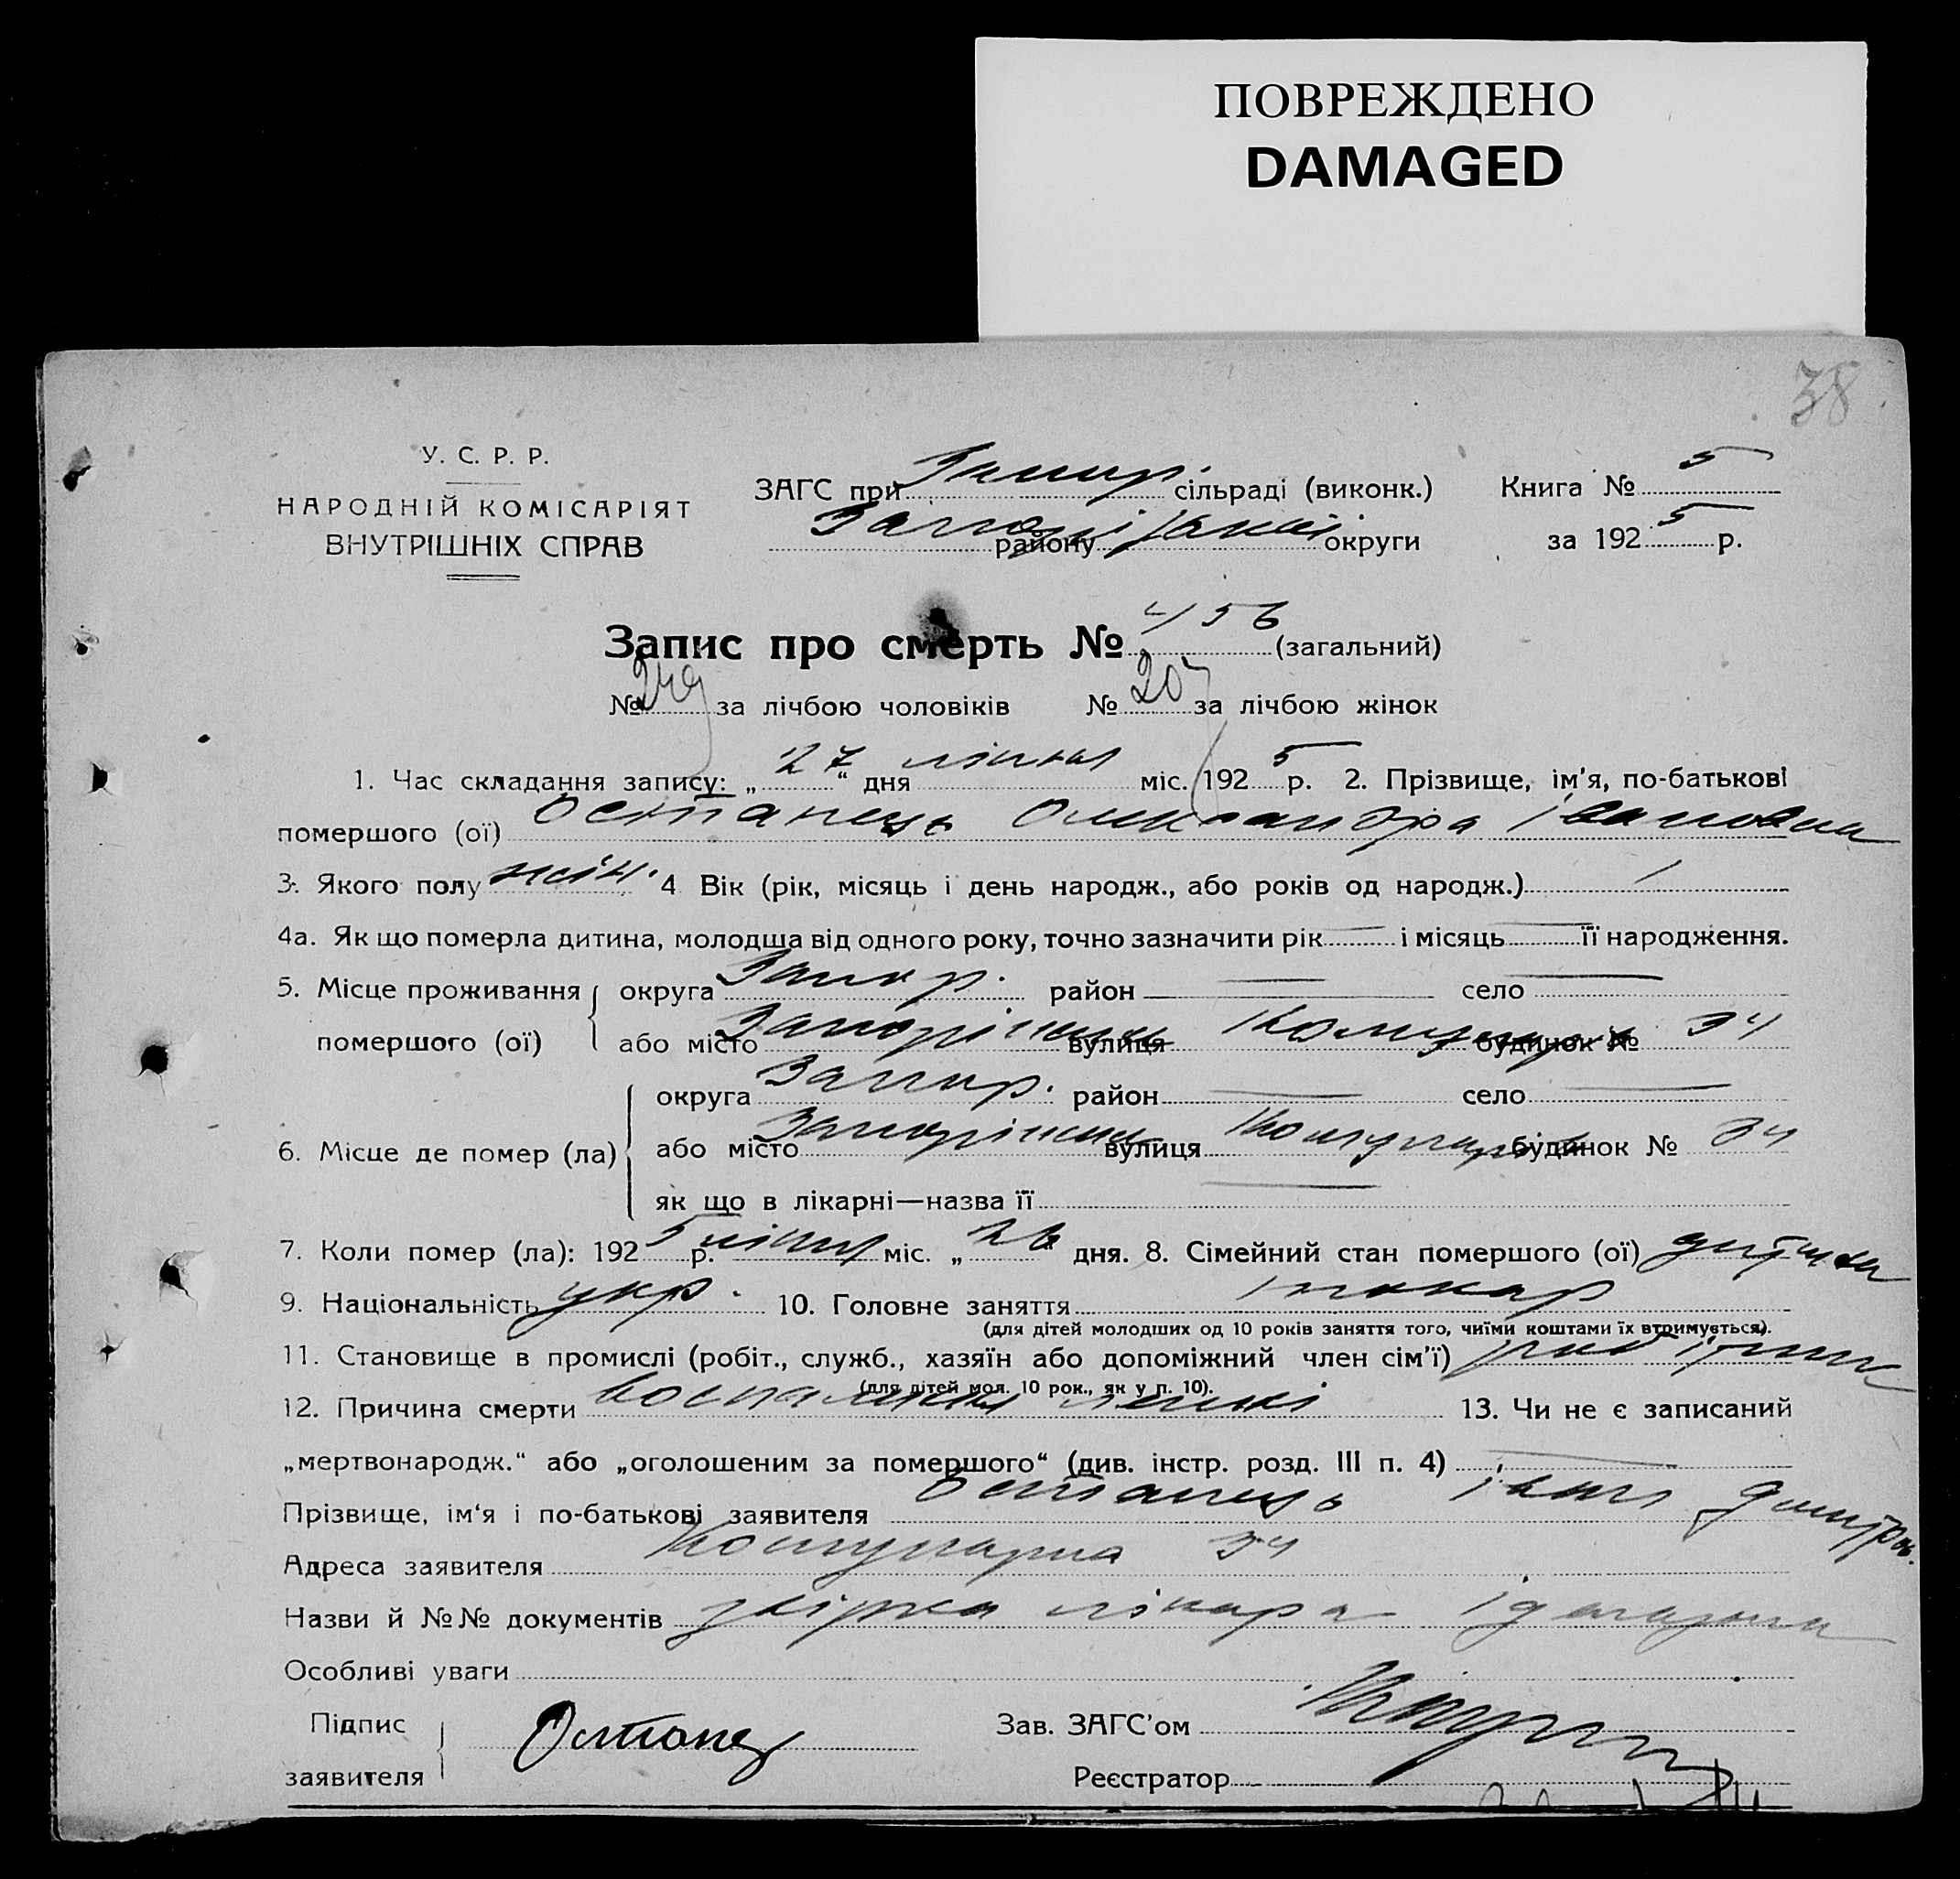 ПОВРЕЖДЕНО
DAMAGED
38
У. С. Р. Р.
НАРОДНІЙ КОМІСАРІЯТ
ВНУТРІШНІХ СПРАВ
ЗАГС при сільраді (виконк.) Книга № 5
району округи за 1925 р.
Запис про смерть № 456 (загальний)
№ 249 за лічбою чоловіків № 207 за лічбою жінок
1. Час складання запису: „27“ дня липня міс. 1925 р. 2. Прізвище, ім'я, по-батькові
помершого (ої) Остапець Олександра Івановна
3. Якого полу жін. 4 Вік (рік, місяць і день народж., або років од народж.) 1
4а. Як що померла дитина, молодша від одного року, точно зазначити рік — і місяць — її народження.
5. Місце проживання округа Запор. район — село —
помершого (ої) або місто Запоріжжя вулиця будинок № 34
округа Запор. район — село —
6. Місце де помер (ла) або місто Запоріжжя вулиця будинок № 34
як що в лікарні—назва її —
7. Коли помер (ла): 1925 р. липня міс. „26 дня. 8. Сімейний стан помершого (ої) дитина
9. Національність укр. 10. Головне заняття токар
(для дітей молодших од 10 років заняття того, чиїми коштами їх втримується).
11. Становище в промислі (робіт., служб., хазяїн або допоміжний член сім'ї)
(для дітей мол. 10 рок., як у п. 10).
12. Причина смерти 13. Чи не є записаний
„мертвонародж.“ або „оголошеним за помершого“ (див. інстр. розд. III п. 4) —
Прізвище, ім'я і по-батькові заявителя Остапець Іван Дмитров.
Адреса заявителя 34
Назви й №№ документів лікаря
Особливі уваги
Підпис Остапец Зав. ЗАГС'ом
заявителя Реєстратор